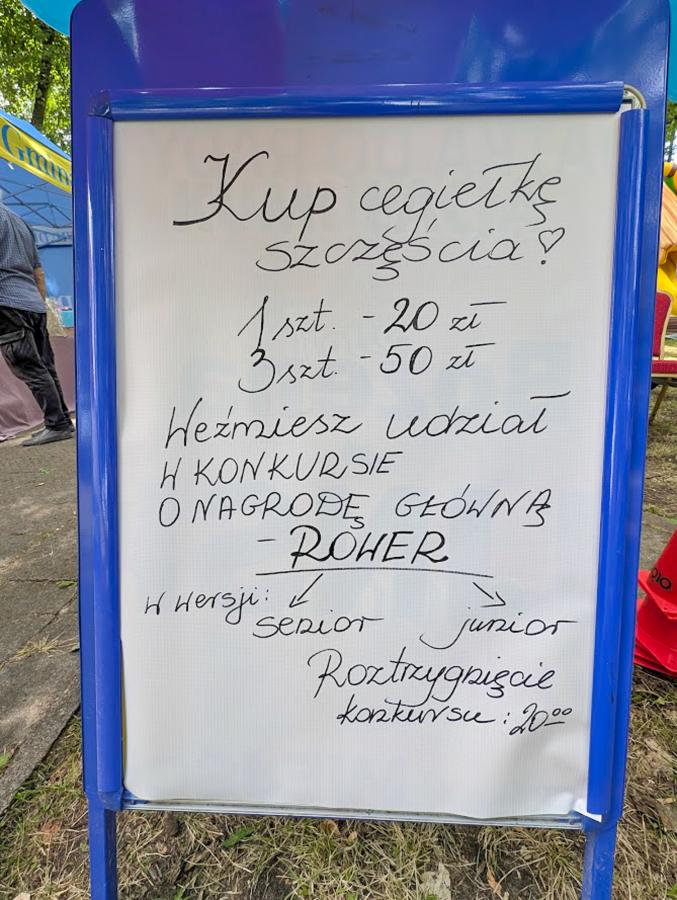 Gmin
Kup cegiełkę
szczęścia ♡
1 szt. - 20 zł
3 szt. - 50 zł
Weźmiesz udział
W KONKURSIE
O NAGRODĘ GŁÓWNĄ
- ROWER
w wersji:
senior junior
Roztrzygnięcie
konkursu : 20⁰⁰